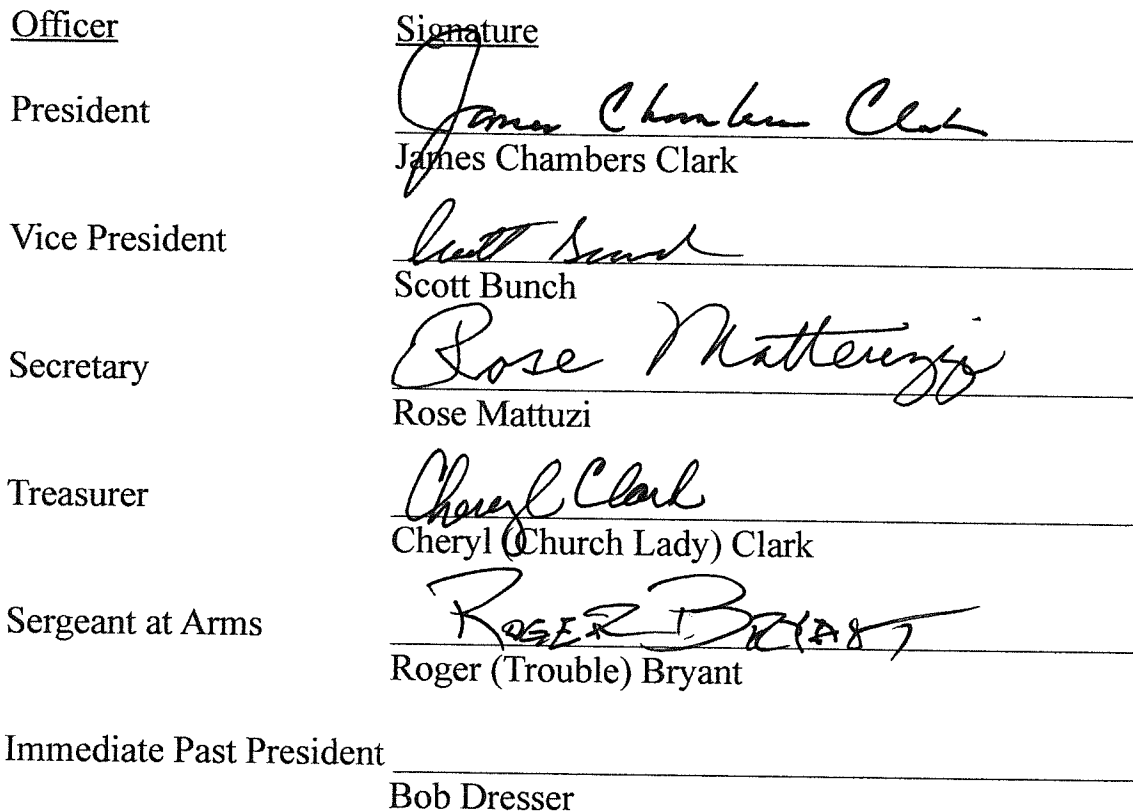 Officer Signature
President James Chambers Clark
James Chambers Clark
Vice President Scott Bunch
Scott Bunch
Secretary Rose Matterizzi
Rose Mattuzi
Treasurer Cheryl Clark
Cheryl (Church Lady) Clark
Sergeant at Arms Roger Bryant
Roger (Trouble) Bryant
Immediate Past President
Bob Dresser